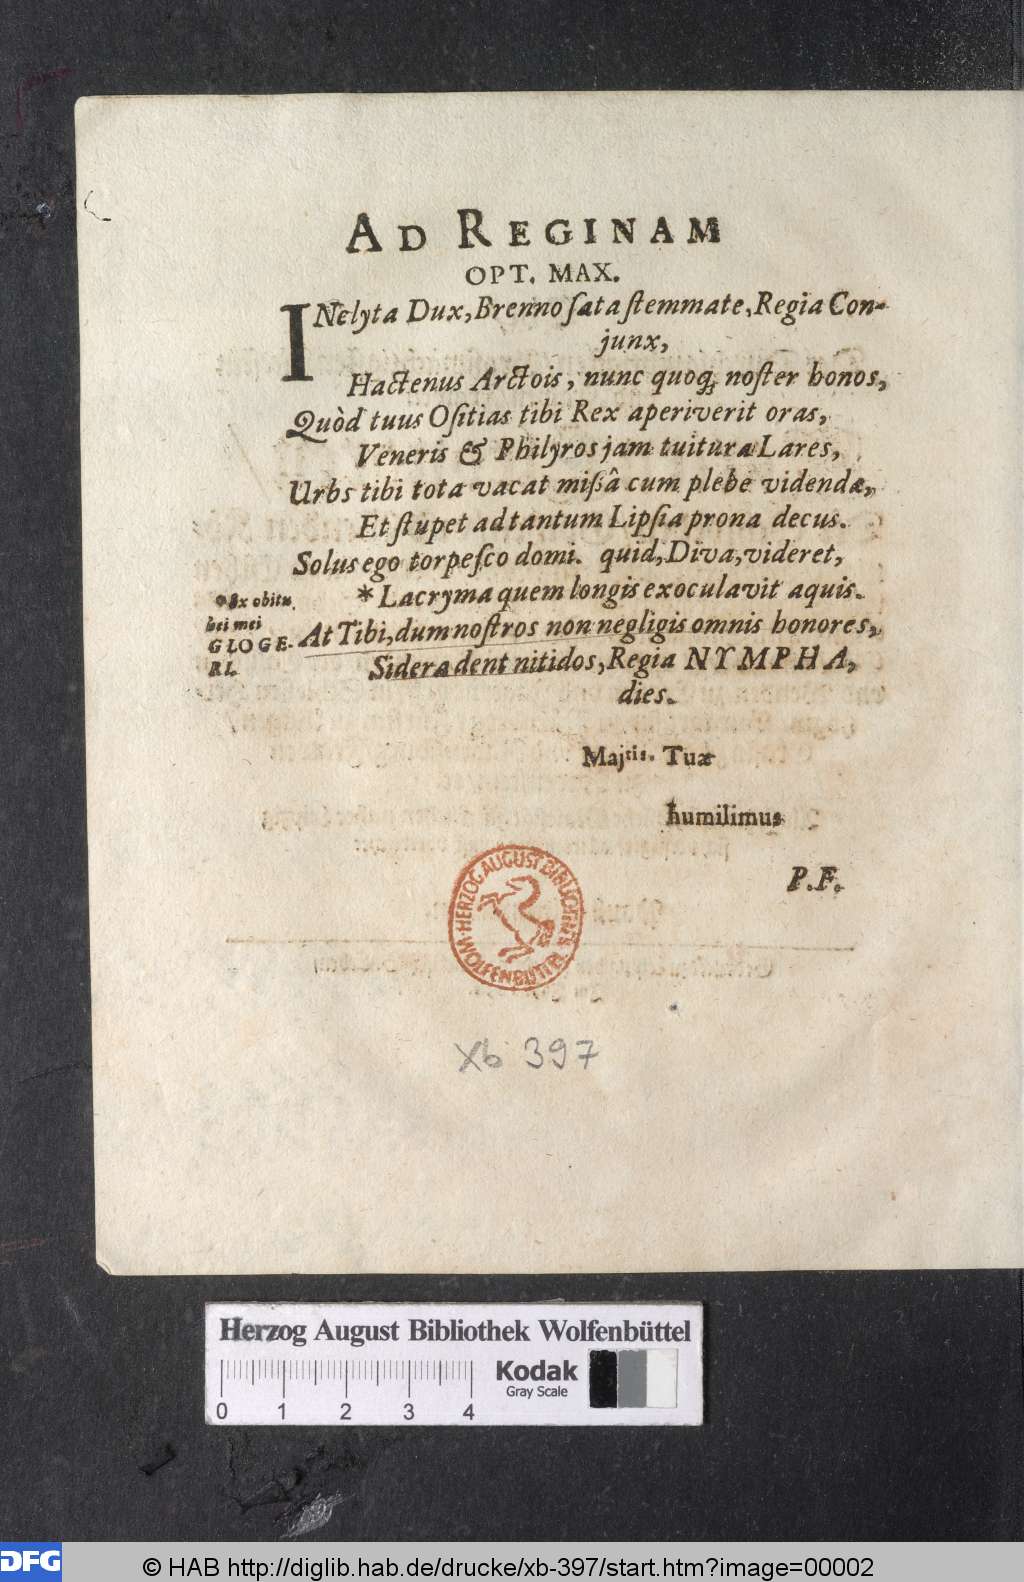 AD REGINAM
OPT. MAX.
INclyta Dux, Brenno ſata ſtemmate, Regia Con-
junx,
Hactenus Arctois, nunc quoq; noſter honos,
Quòd tuus Oſitias tibi Rex aperiverit oras,
Veneris & Philyros jam tuituræ Lares,
Urbs tibi tota vacat miſsâ cum plebe videndæ,
Et ſtupet ad tantum Lipſia prona decus.
Solus ego torpeſco domi. quid, Diva, videret,
* Lacryma quem longis exoculavit aquis.
* Ex obitu
mei
GLOGE-
RI.
At Tibi, dum noſtros non negligis omnis honores,
Sidera dent nitidos, Regia NYMPHA,
dies.
Majtis. Tuæ
humilimus
P.F.
HERZOG AUGUST BIBLIOTHEK
WOLFENBÜTTEL
Xb 397
Herzog August Bibliothek Wolfenbüttel
Kodak
Gray Scale
0 1 2 3 4
DFG
© HAB http://diglib.hab.de/drucke/xb-397/start.htm?image=00002